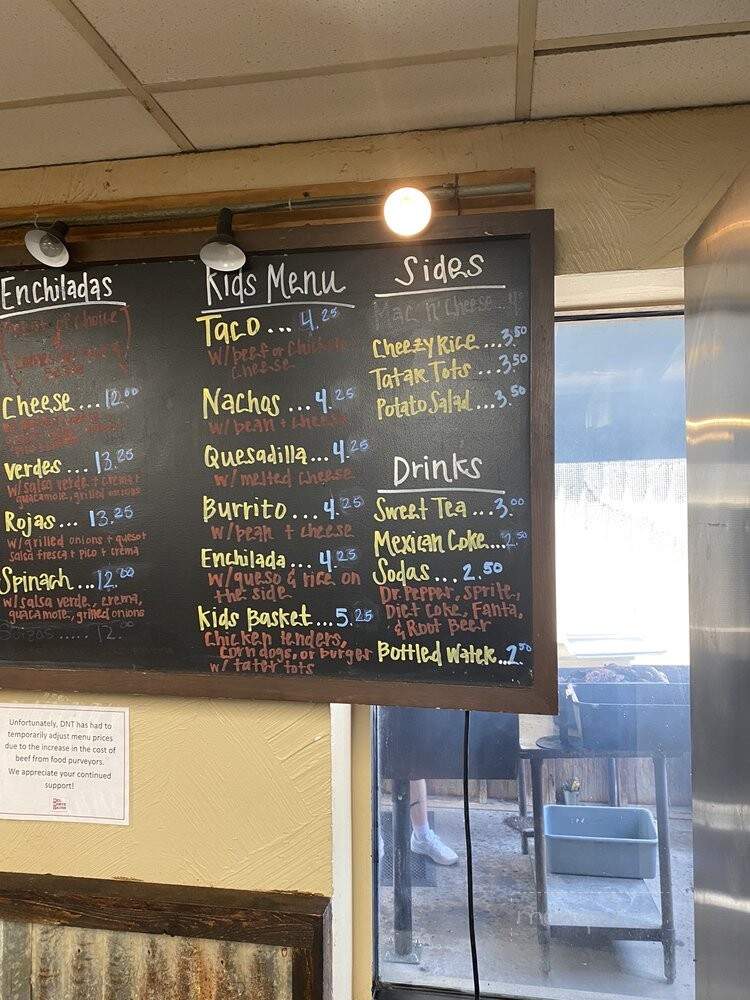 Enchiladas
Cheese... 12.00
Verdes... 13.25
w/ salsa verde + crema +
guacamole, grilled onions
Rojas... 13.25
w/ grilled onions + queso +
salsa fresca + pico + crema
Spinach... 12.00
w/ salsa verde, crema,
guacamole, grilled onions
Kids Menu
Taco... 4.25
w/ beef or chicken
cheese
Nachos... 4.25
w/ bean + cheese
Quesadilla... 4.25
w/ melted cheese
Burrito... 4.25
w/ bean + cheese
Enchilada... 4.25
w/ queso & rice on
the side
Kids Basket... 5.25
Chicken tenders,
corn dogs, or burger
w/ tater tots
Sides
Mac n' Cheese
Cheezy Rice...3.50
Tatar Tots...3.50
Potato Salad...3.50
Drinks
Sweet Tea...3.00
Mexican Coke...2.50
Sodas... 2.50
Dr. Pepper, Sprite,
Diet Coke, Fanta,
& Root Beer
Bottled Water...2.50
Unfortunately, DNT has had to
temporarily adjust menu prices
due to the increase in the cost of
beef from food purveyors.
We appreciate your continued
support!